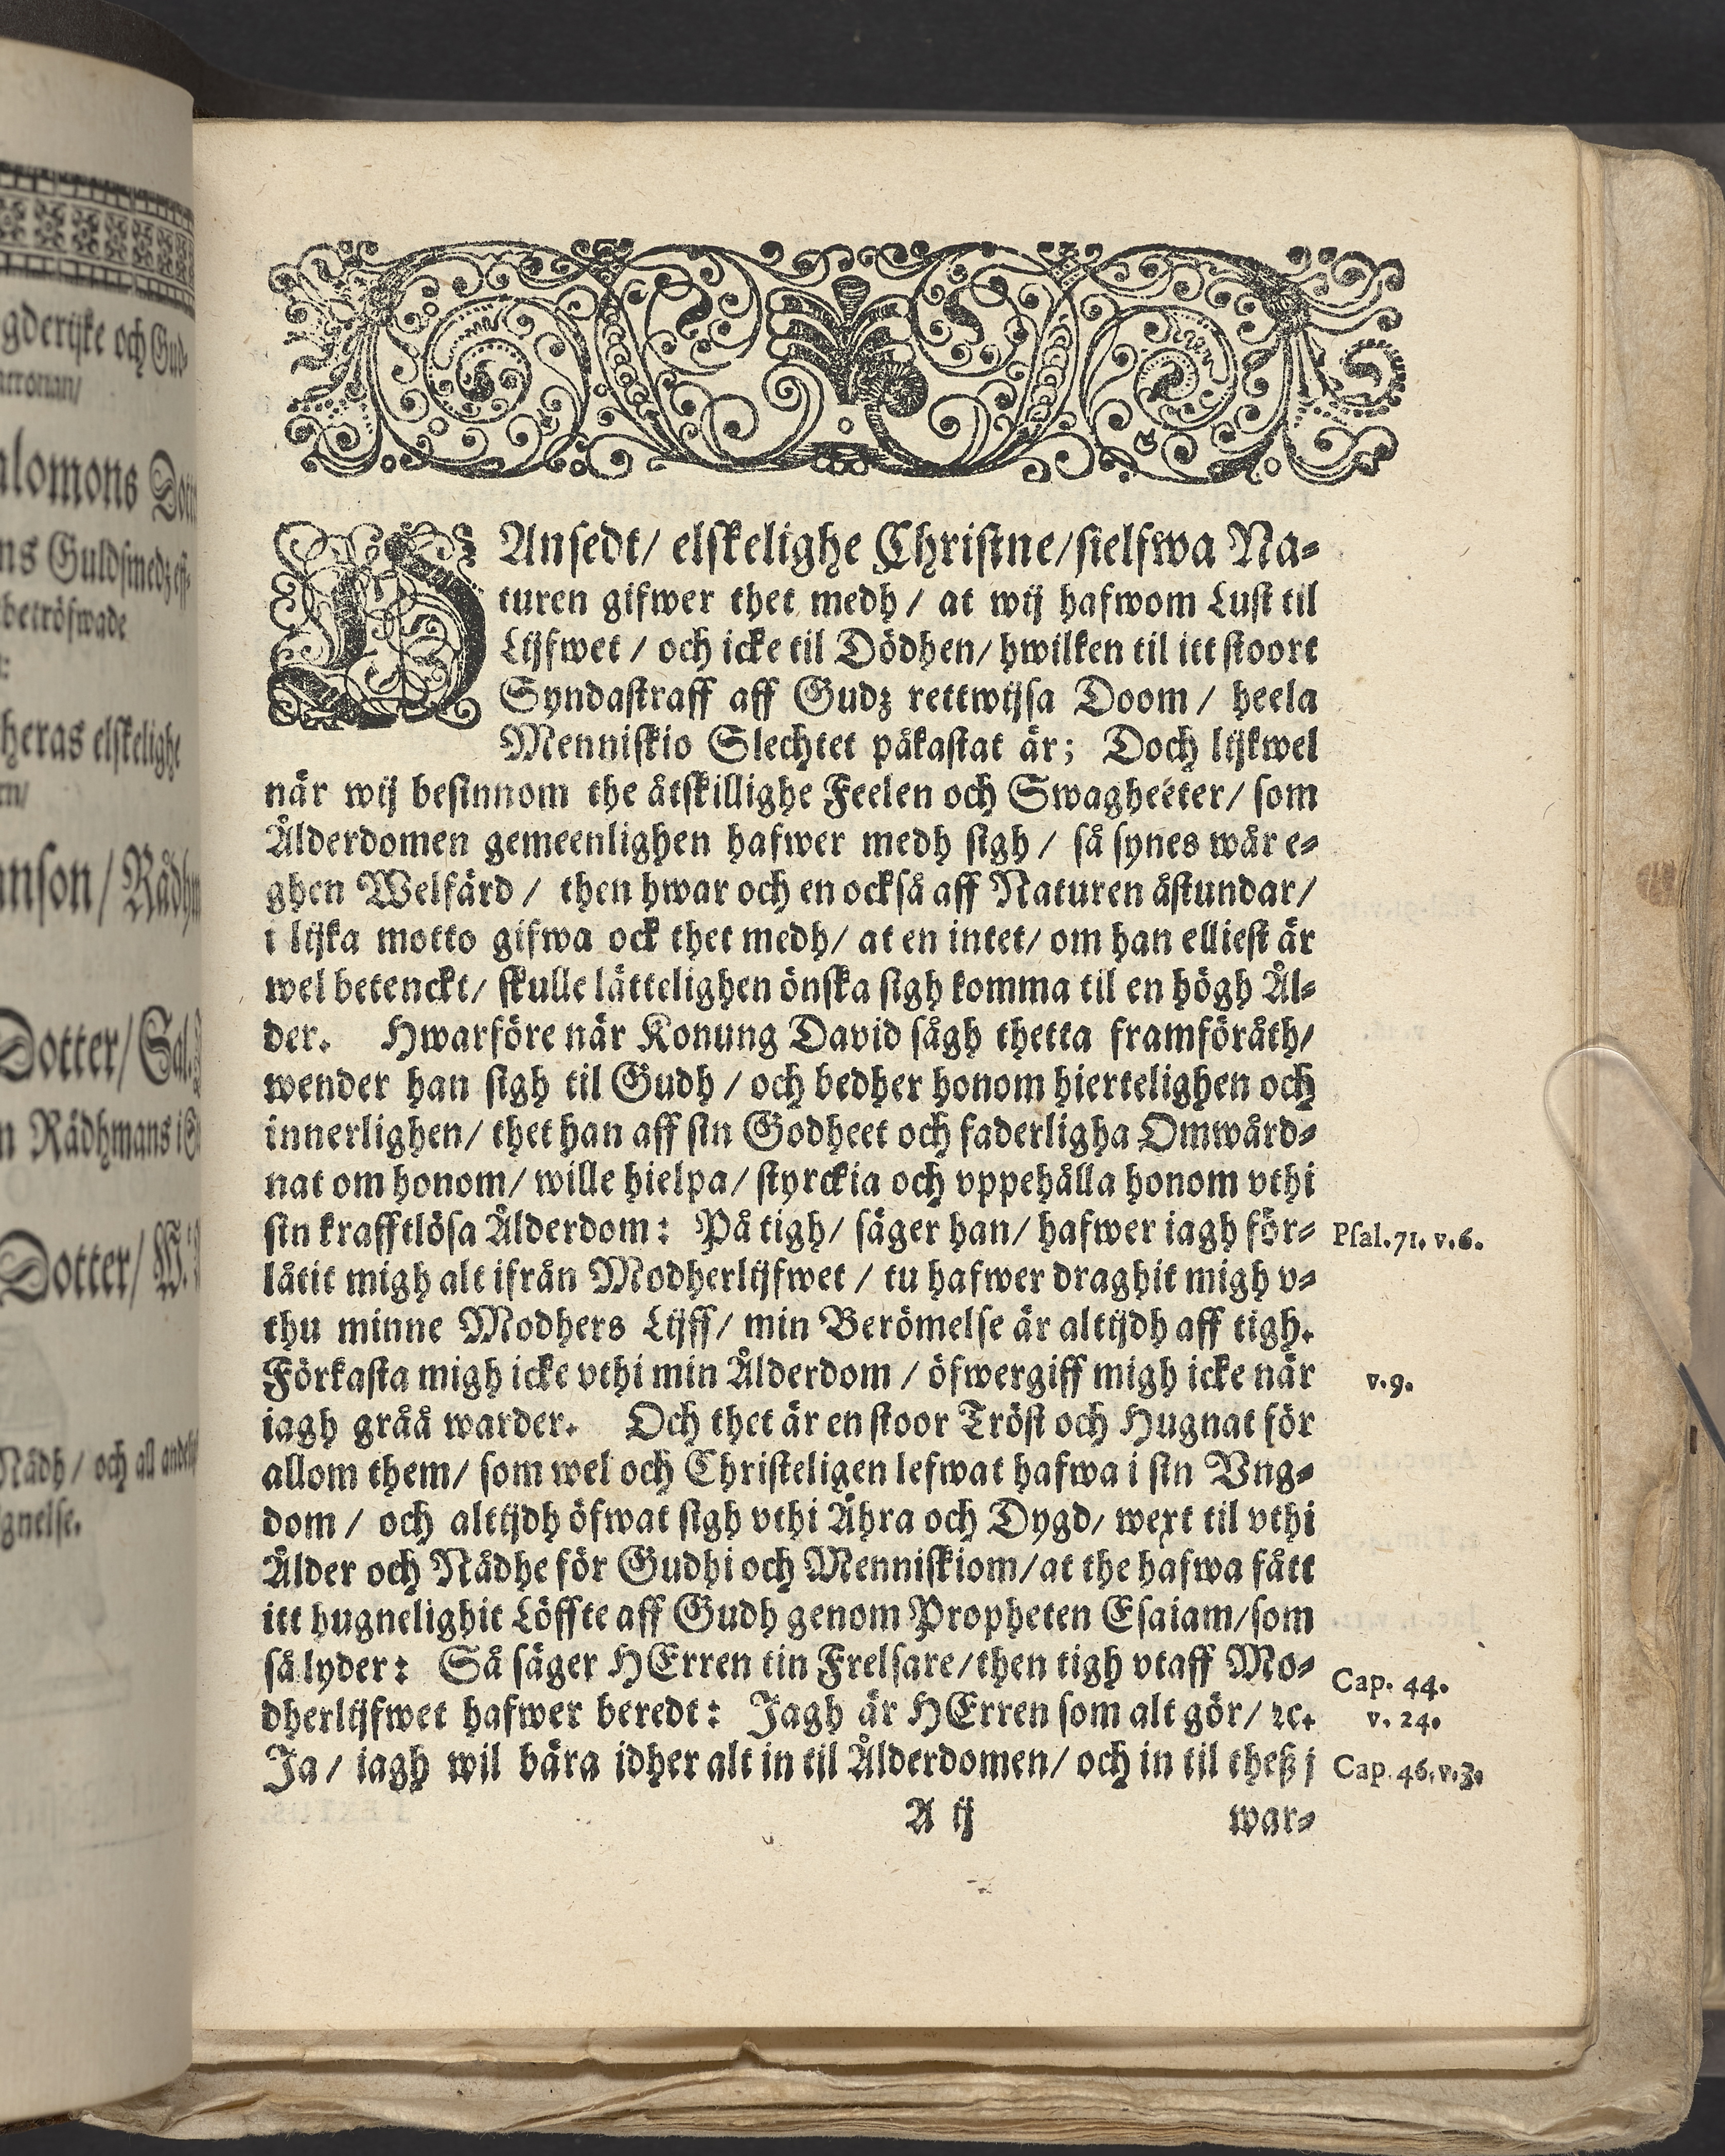 gderijke och Gud-
atronan/
alomons Dott
ns Guldsmedz eff-
betröfwade
heras elskelighe
rn/
nson/ Rådhm
Dotter/ Sal.
n Rådhmans i
Dotter/ W.
Nådh/ och all andeli
gnelse.
LAnsedt/ elskelighe Christne/ sielfwa Na-
turen gifwer thet medh/ at wij hafwom Lust til
Lijfwet/ och icke til Dödhen/ hwilken til itt stoort
Syndastraff aff Gudz rettwijsa Doom/ heela
Menniskio Slechtet påkastat är; Doch lijkwel
når wij besinnom the åtskillighe Feelen och Swagheeter/ som
Ålderdomen gemeenlighen hafwer medh sigh/ så synes wår e-
ghen Welfärd/ then hwar och en också aff Naturen åstundar/
i lijka motto gifwa ock thet medh/ at en intet/ om han elliest är
wel betenckt/ skulle lättelighen önska sigh komma til en högh Ål-
der. Hwarföre när Konung David sågh thetta framföråth/
wender han sigh til Gudh/ och bedher honom hiertelighen och
innerlighen/ thet han aff sin Godheet och faderligha Omwård-
nat om honom/ wille hielpa/ styrckia och vppehålla honom vthi
sin krafftlösa Ålderdom: På tigh/ säger han/ hafwer iagh för-
Psal. 71. v. 6.
låtit migh alt ifrån Modherlijfwet/ tu hafwer draghit migh v-
thu minne Modhers Lijff/ min Berömelse är altijdh aff tigh.
Förkasta migh icke vthi min Ålderdom/ öfwergiff migh icke när
v. 9.
iagh gråå warder. Och thet är en stoor Tröst och Hugnat för
allom them/ som wel och Christeligen lefwat hafwa i sin Vng-
dom/ och altijdh öfwat sigh vthi Åhra och Dygd/ wext til vthi
Ålder och Nådhe för Gudhi och Menniskiom/ at the hafwa fått
itt hugnelighit Löffte aff Gudh genom Propheten Esaiam/ som
så lyder: Så säger HErren tin Frelsare/ then tigh vtaff Mo-
Cap. 44.
dherlijfwet hafwer beredt: Jagh är HErren som alt gör/ ꝛc.
v. 24.
Ja/ iagh wil bära idher alt in til Ålderdomen/ och in til theß j
Cap. 46. v. 3.
A ij
war-